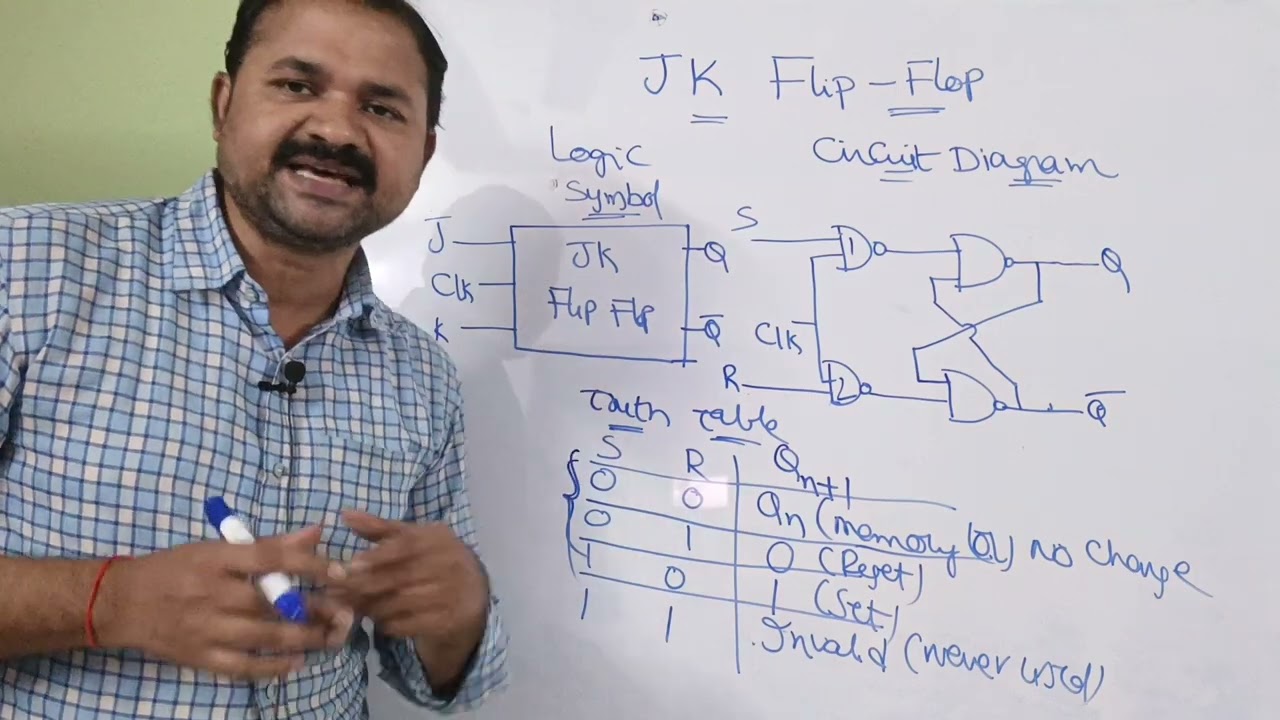 JK Flip-Flop
Logic
Symbol
Circuit Diagram
J
Clk
K
JK
Flip Flp
Q
Q̅
S
Clk
R
1
2
Q
Q̅
Truth Table
S R Qn+1
0 0 Qn (memory (or) no change
0 1 0 (Reset)
1 0 1 (Set)
1 1 Invalid (never used)